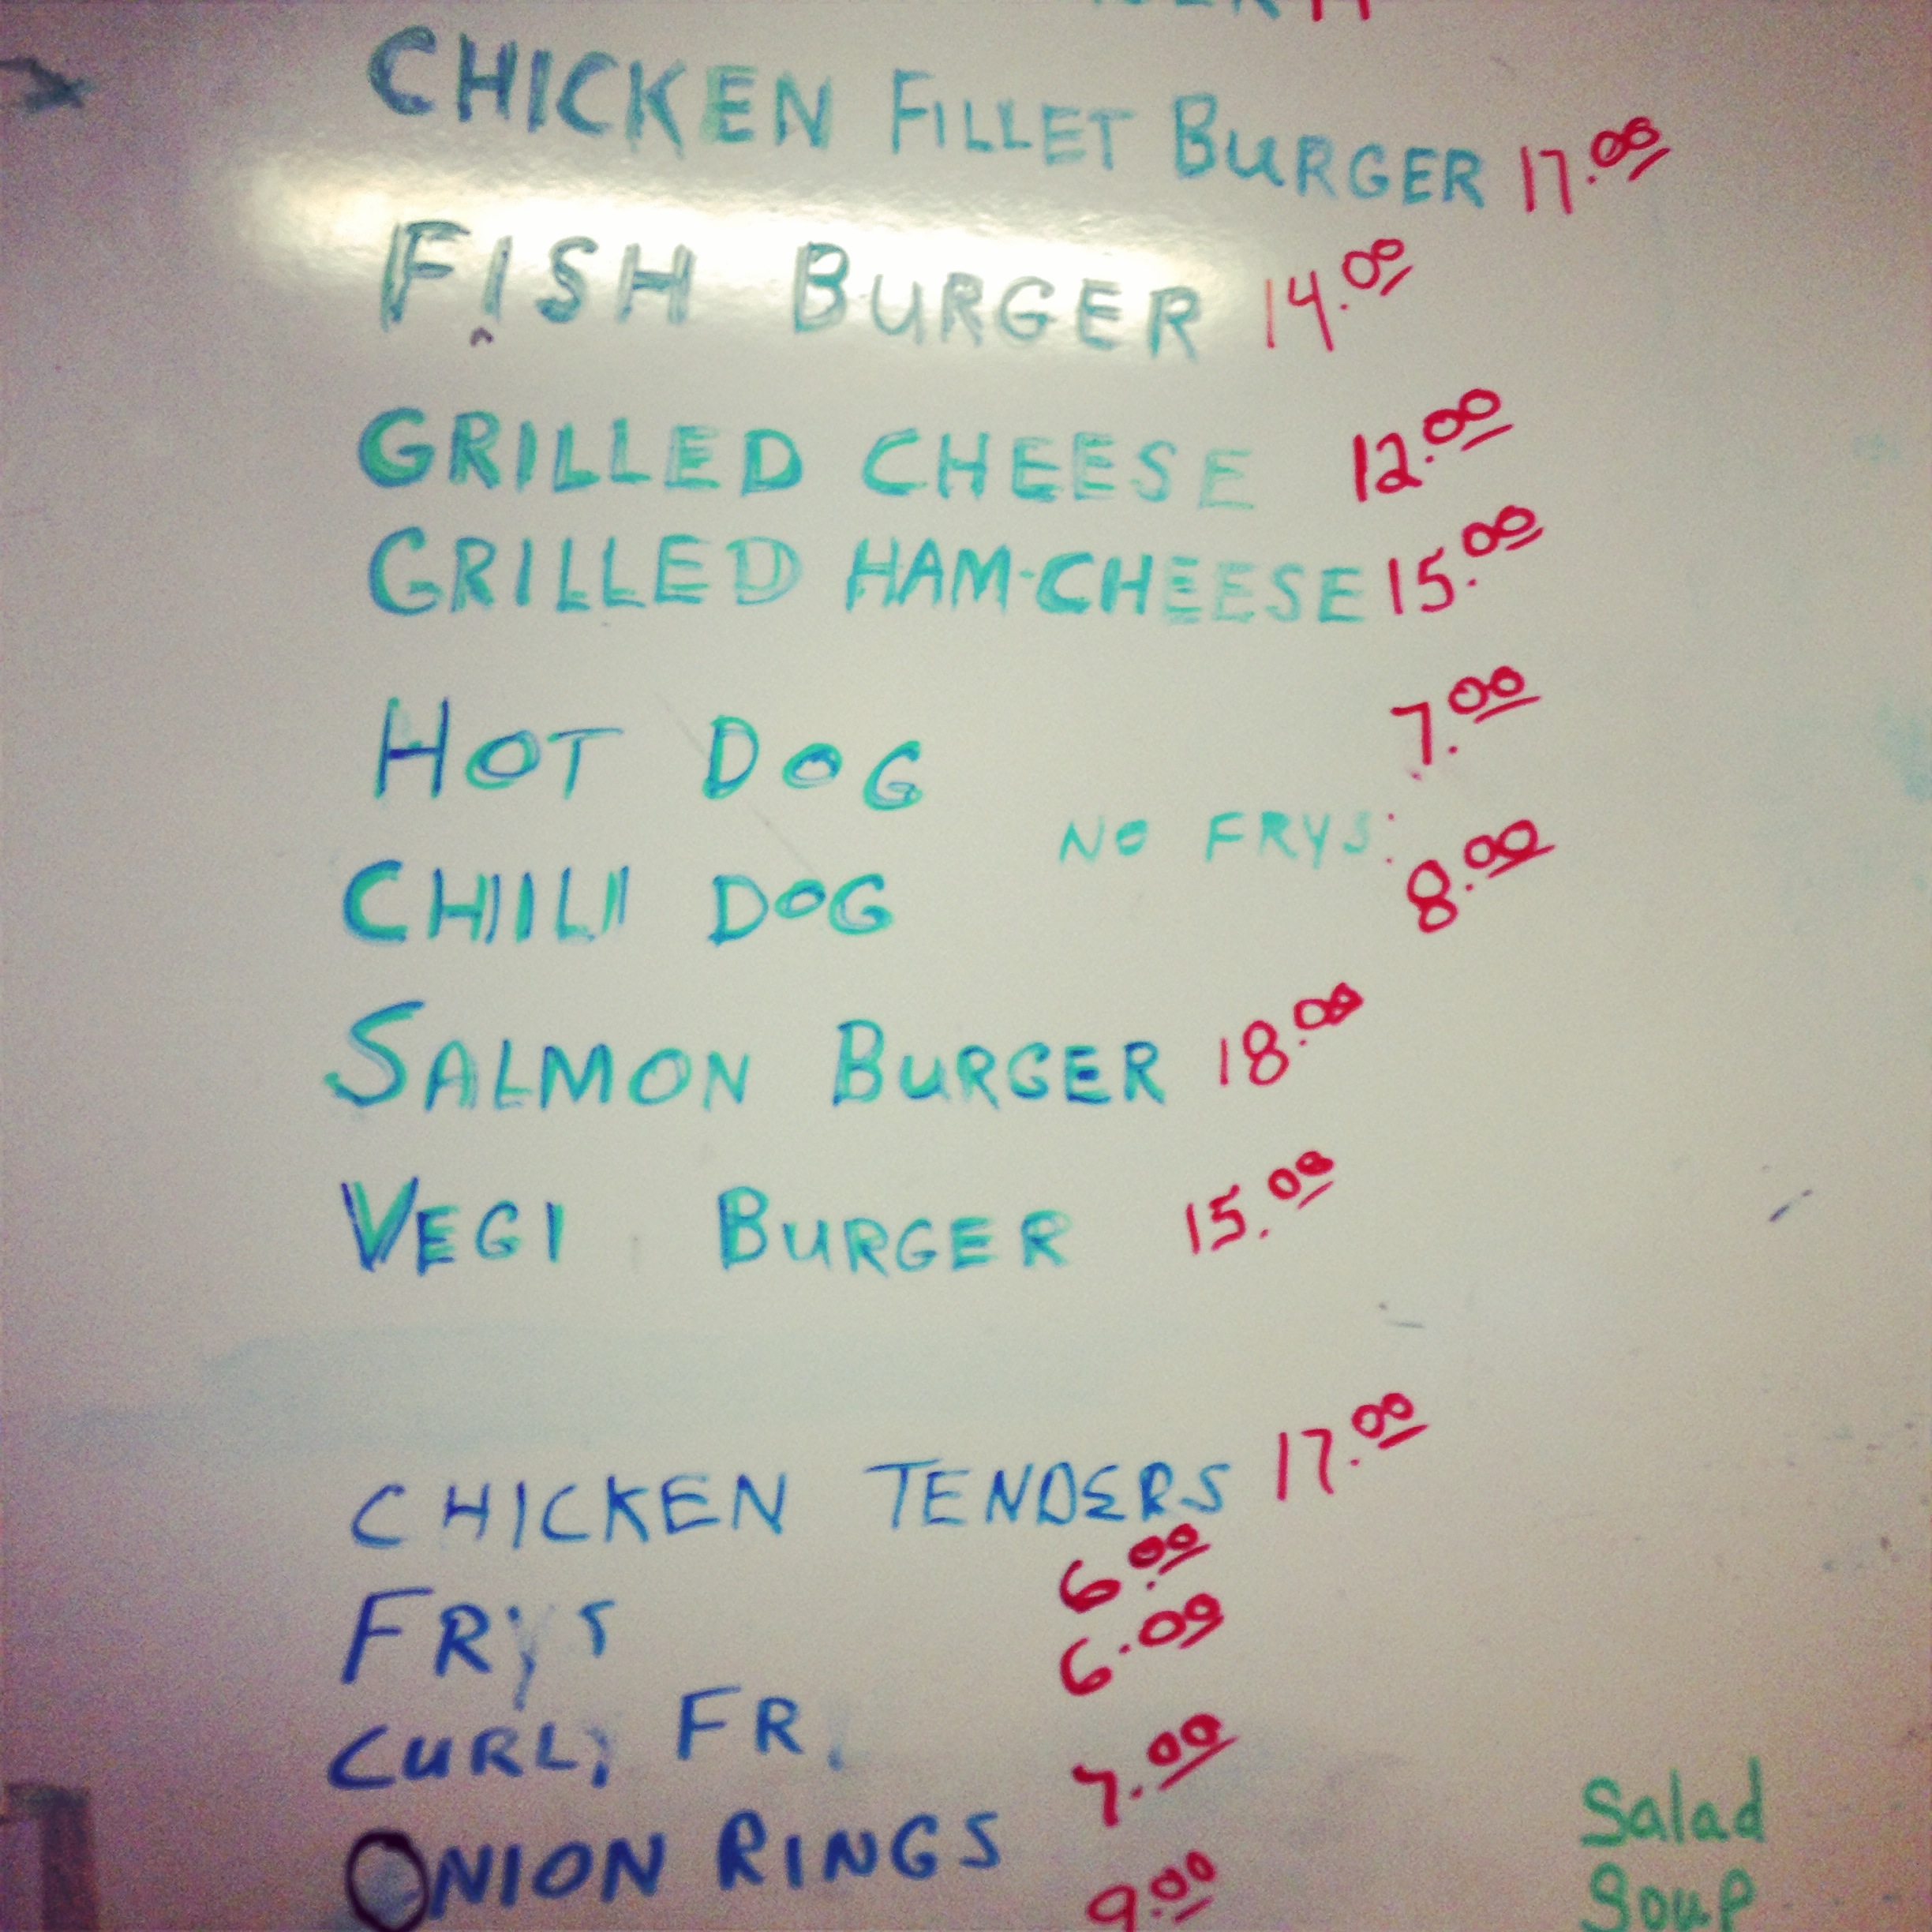 CHICKEN FILLET BURGER 17.00
FISH BURGER 14.00
GRILLED CHEESE 12.00
GRILLED HAM-CHEESE 15.00
HOT DOG 7.00
NO FRYS
CHILI DOG 8.00
SALMON BURGER 18.00
VEGI BURGER 15.00
CHICKEN TENDERS 17.00
FRYS 6.00
6.00
CURLY FR
7.00
ONION RINGS
9.00
Salad
Soup